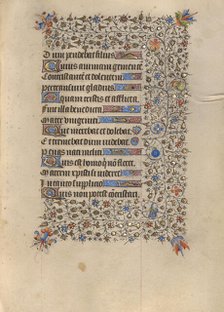 Dum pendebat filius
Cuius animam gementem
Contristantem et dolentem
Pertransiuit gladius
O quam tristis et afflicta
Fuit illa benedicta
Mater unigeniti
Que merebat et dolebat
Et tremebat dum videbat
Penas nati
Quis est homo qui non fleret
Matrem xpisti si videret
In tanto supplicio
Quis non posset contristari